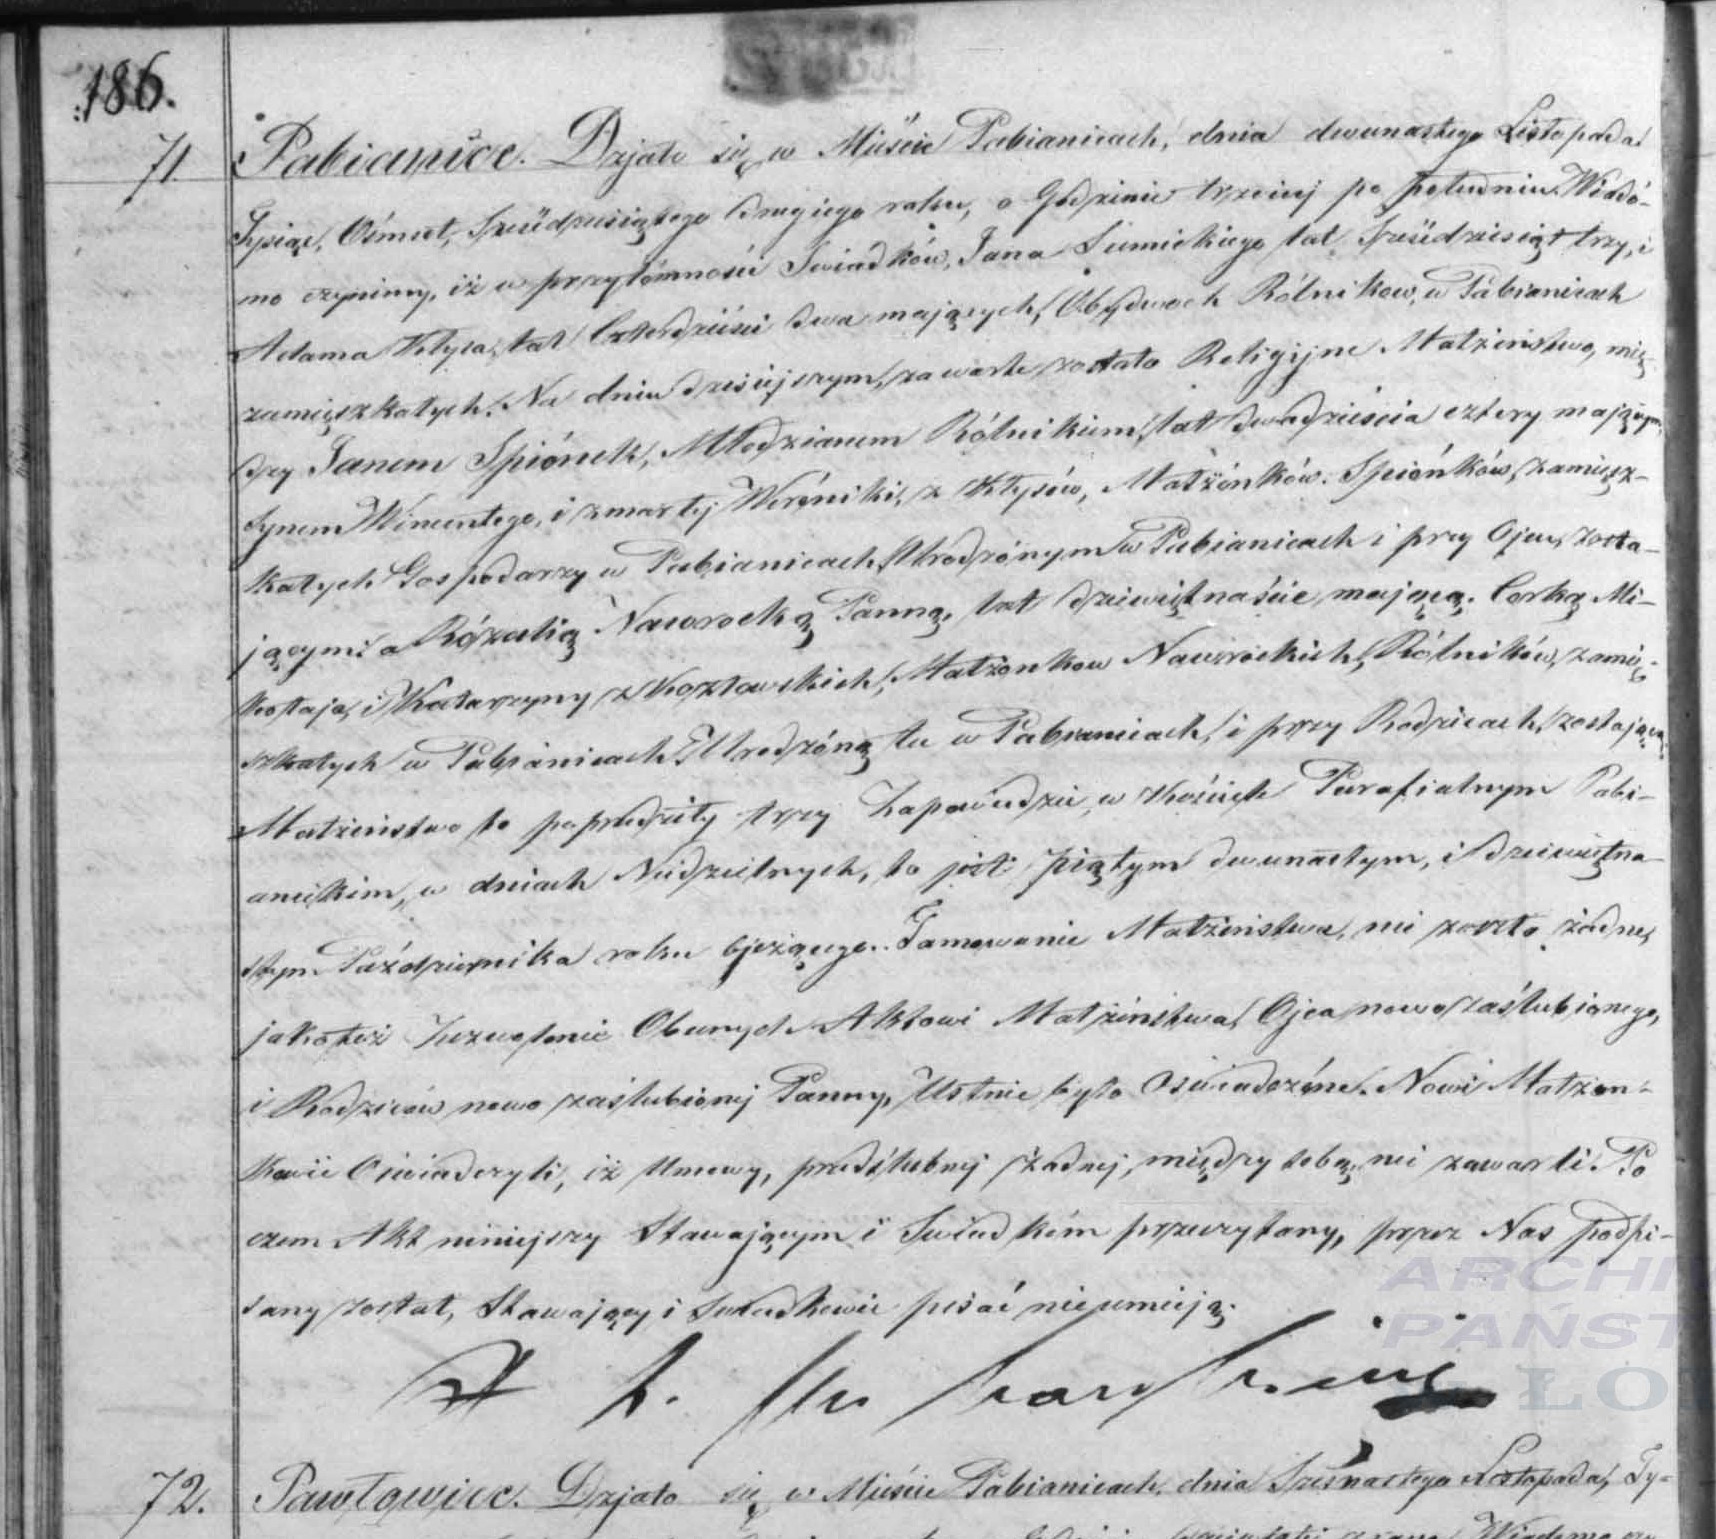 186.
71. Pabianice. Działo się w Mieście Pabianicach, dnia dwunastego Listopada
Tysiąc, Ośmset, Sześdziesiątego drugiego roku, o Godzinie trzeciej po południu. Wiadó-
mo czynimy, iż w przytómności Świadków, Jana Lat Sześdziesiąt trzy, i
Adama Kłysa, lat Czterdzieści dwa mających, Obydwoch Rólników, w Pabianicach
zamięszkałych. Na dniu dzisiejszym, zawarte zostało Religijne Małżeństwo, mię-
dzy Janem Spiónek, Młodzianem Rólnikiem, lat dwadzieścia cztery mającym,
Synem Wincentego, i zmarłej Weróniki, z Kłysów, Małżónków. Spiónków, zamięsz-
kałych Gospodarzy w Pabianicach, Urodzónym w Pabianicach i przy Ojcu, zosta-
jącym: a Rózalią Nawrocką Panną, lat dziewiętnaście mającą. Corką Mi-
kołaja, i Katarzyny z Kozłowskich, Małżonkow Nawrockich, Rólników, zamię-
szkałych w Pabianicach. Urodzóną tu w Pabianicach, i przy Rodzicach, zostającą.
Małżeństwo to poprzedziły trzy Zapowiedzie, w Kościele Parafialnym Pabi-
anickim, w dniach Niedzielnych, to jest: piątym dwunastym, i dziewiętna-
stym Października roku bjeżącego. Tamowanie Małżeństwa, nie zaszło żadne,
jako też Zezwolenie Obecnych Aktowi Małżeństwa, Ojca nowo zaślubionego,
i Rodziców nowo zaślubionej Panny, Ustnie było Oświadczóne. Nowi Małżon-
kowie Oświadczyli, iż Umowy, przedślubnej żadnej, między sobą, nie zawarli. Po
czem Akt niniejszy Stawającym i Świadkóm przeczytany, przez Nas podpi-
sany został, Stawający i Świadkowie pisać nieumieją.
72. Pawłowice. Działo się w Mieście Pabianicach, dnia Szesnastego Listopada, Ty-
ARCHI
PAŃST
ŁO